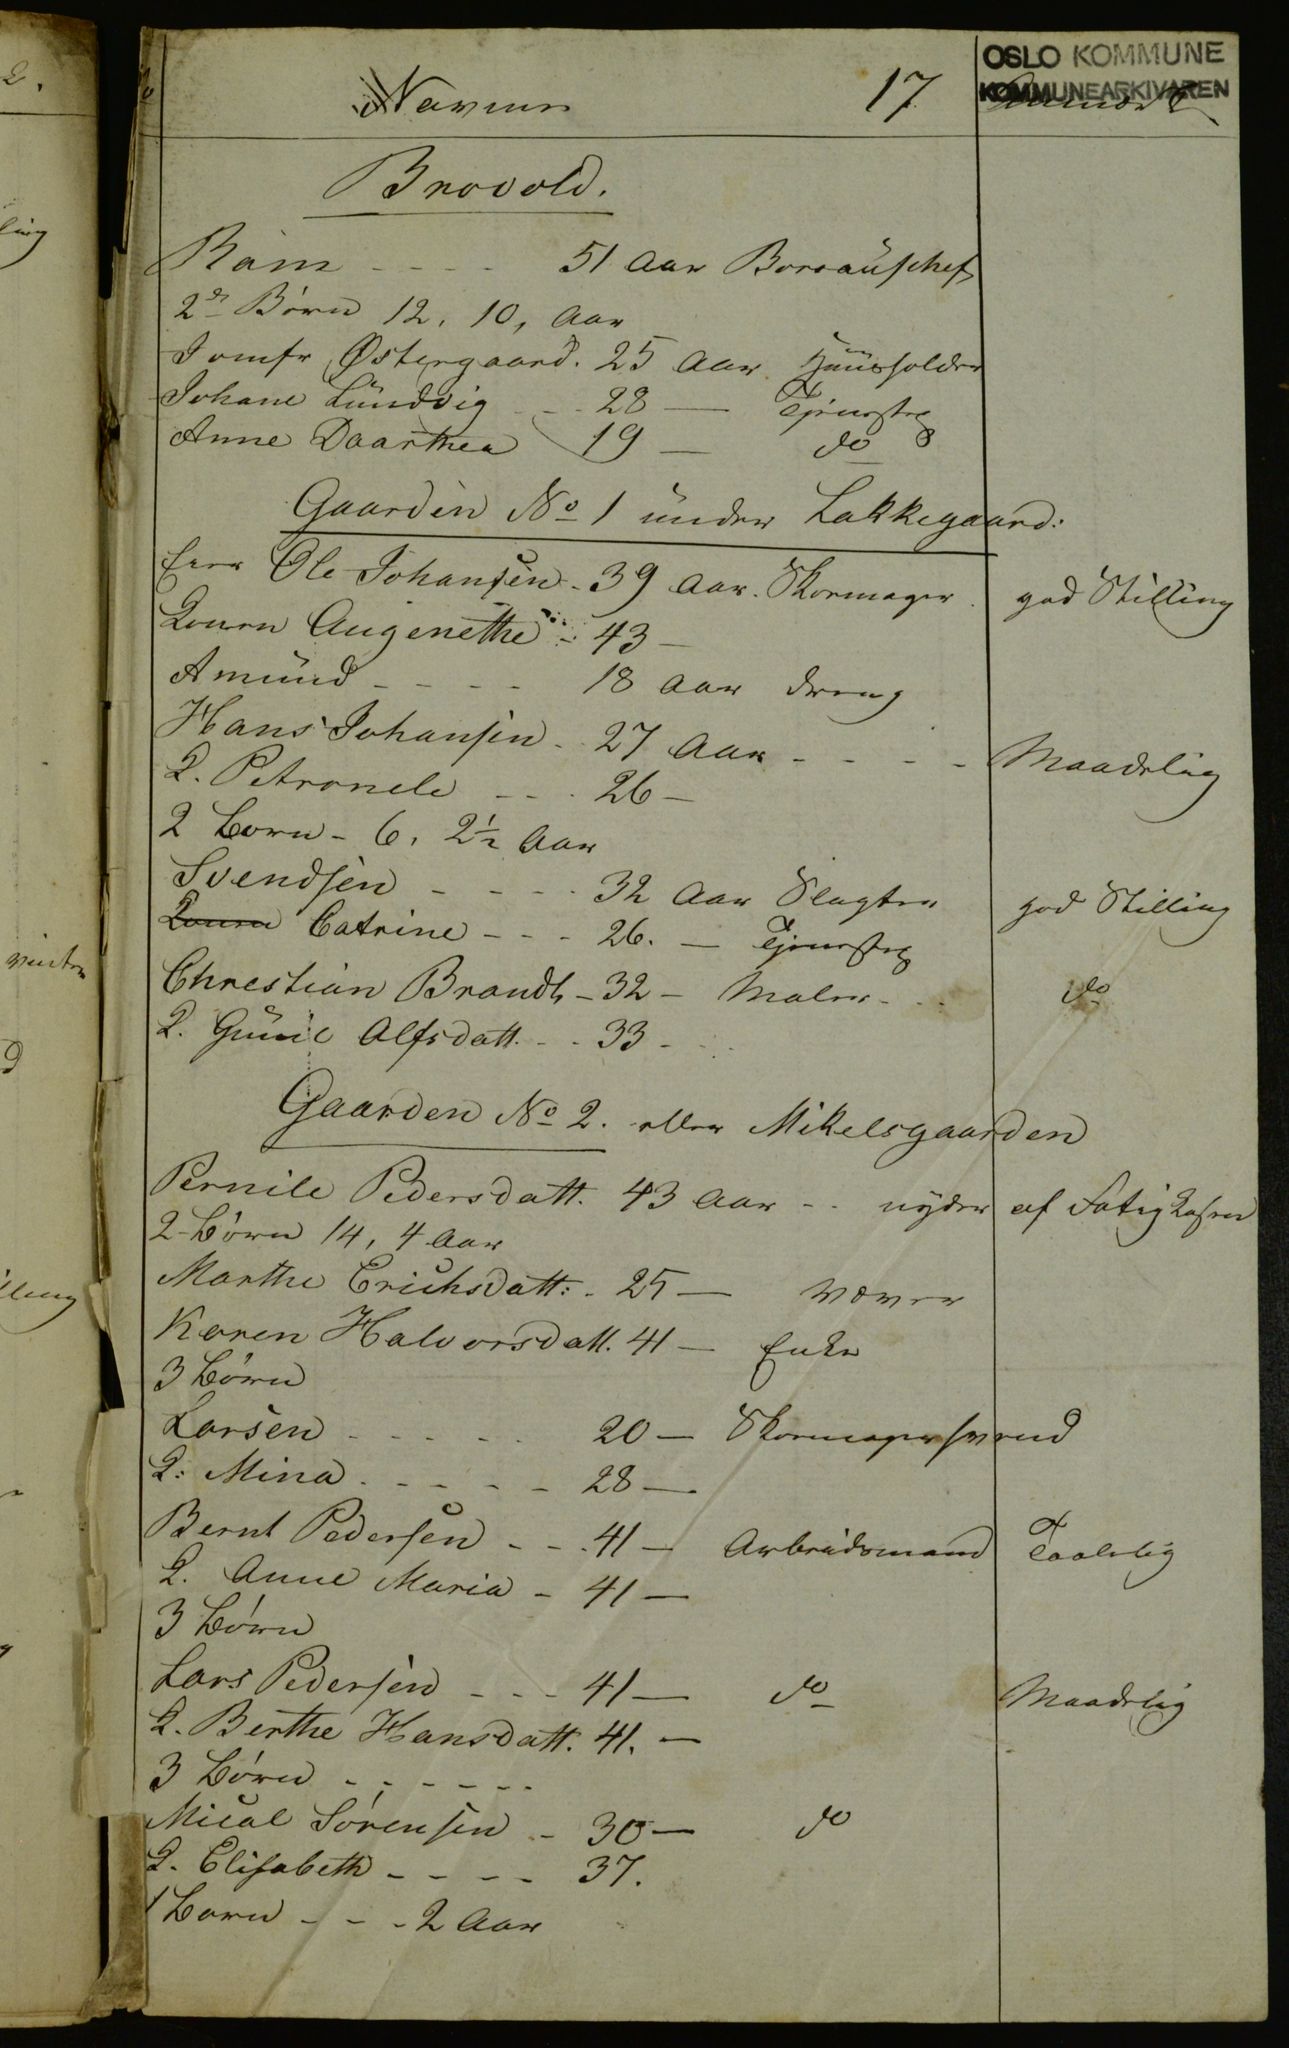 OSLO KOMMUNE
KOMMUNEARKIVAREN
Navne 17 Anmærk
Brovold.
Ram - - - - 51 Aar Boreauschef
2de Børn 12, 10, Aar
Jomfr Østergaard. 25 Aar Huusholder
Johane Lundvig - - 28 — Tjeneste
Anne Daarthea 19 — do
Gaarden No 1 under Lakkegaard:
Eier Ole Johansen - 39 Aar. Skomager. god Stilling
Konen Augenethe - 43 —
Amund - - - - 18 Aar dreng
Hans Johansen - 27 Aar - - - - Maadelig
K. Petronele - - - 26 —
2 Børn - 6, 2½ Aar
Svendsen - - - - 32 Aar Slagter god Stilling
Konen Catrine - - - 26. — Tjeneste
Chrestian Brandt - 32 — Maler - - do
K. Gunil Alfsdatt. - - 33 - -
Gaarden No 2. eller Mikelsgaarden
Pernile Pedersdatt. 43 Aar - - nyder af Fatigkasen
2 Børn 14, 4 Aar
Marthe Erichsdatt: - 25 — Væver
Karen Halvorsdatt. 41 — Enke
3 Børn
Larsen - - - - - 20 — Skomagersvend
K: Mina - - - - - 28 —
Bernt Pedersen - - - 41 — Arbeidsmand Taalelig
K. Anne Maria - 41 —
3 Børn
Lars Pedersen - - - 41 — do Maadelig
K. Berthe Hansdatt. 41. —
3 Børn - - - - - -
Mical Sørensen - 30 — do
K. Elisabeth - - - - 37.
1 Barn - - - 2 Aar